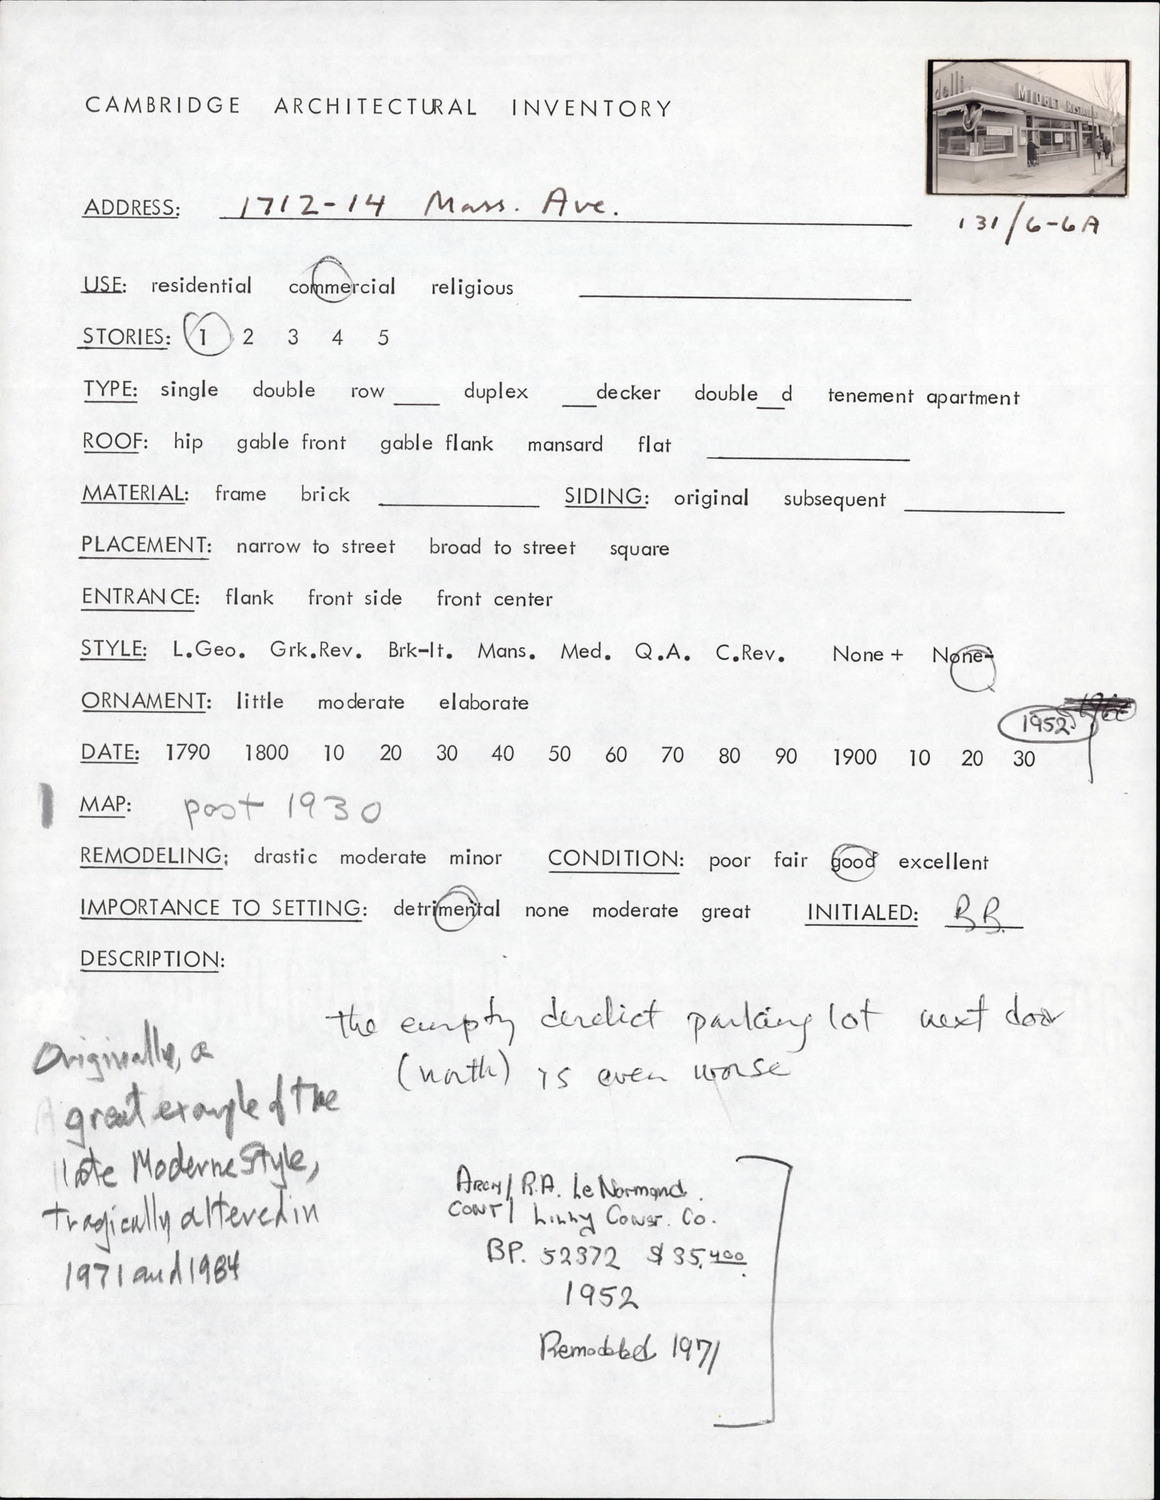 CAMBRIDGE ARCHITECTURAL INVENTORY
delli
MIDGET
ADDRESS: 1712-14 Mass. Ave.
131/6-6A
USE: residential commercial religious
STORIES: 1 2 3 4 5
TYPE: single double row ____ duplex ___decker double__d tenement apartment
ROOF: hip gable front gable flank mansard flat
MATERIAL: frame brick SIDING: original subsequent
PLACEMENT: narrow to street broad to street square
ENTRANCE: flank front side front center
STYLE: L.Geo. Grk.Rev. Brk-It. Mans. Med. Q.A. C.Rev. None + None-
ORNAMENT: little moderate elaborate
1952
DATE: 1790 1800 10 20 30 40 50 60 70 80 90 1900 10 20 30
MAP: post 1930
REMODELING: drastic moderate minor CONDITION: poor fair good excellent
IMPORTANCE TO SETTING: detrimental none moderate great INITIALED: BB.
DESCRIPTION:
the empty derelict parking lot next door
(north) is even worse
Originally, a
great example of the
late Moderne Style,
tragically altered in
1971 and 1984
Arch/ R.A. LeNormand.
CONT/ Const. Co.
BP. 52372 $35,400.
1952
Remodeled 1971